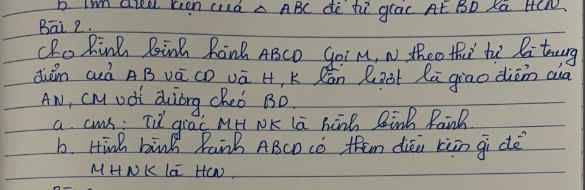 b. Tìm điều kiện của △ ABC để tứ giác AEBD là HCN
Bài 2.
Cho hình bình hành ABCD gọi M, N theo thứ tự là trung
điểm của AB và CD và H, K lần lượt là giao điểm của
AN, CM với đường chéo BD.
a. cm: Tứ giác MHNK là hình bình hành
b. Hình bình hành ABCD có thêm điều kiện gì để
MHNK là HCN.